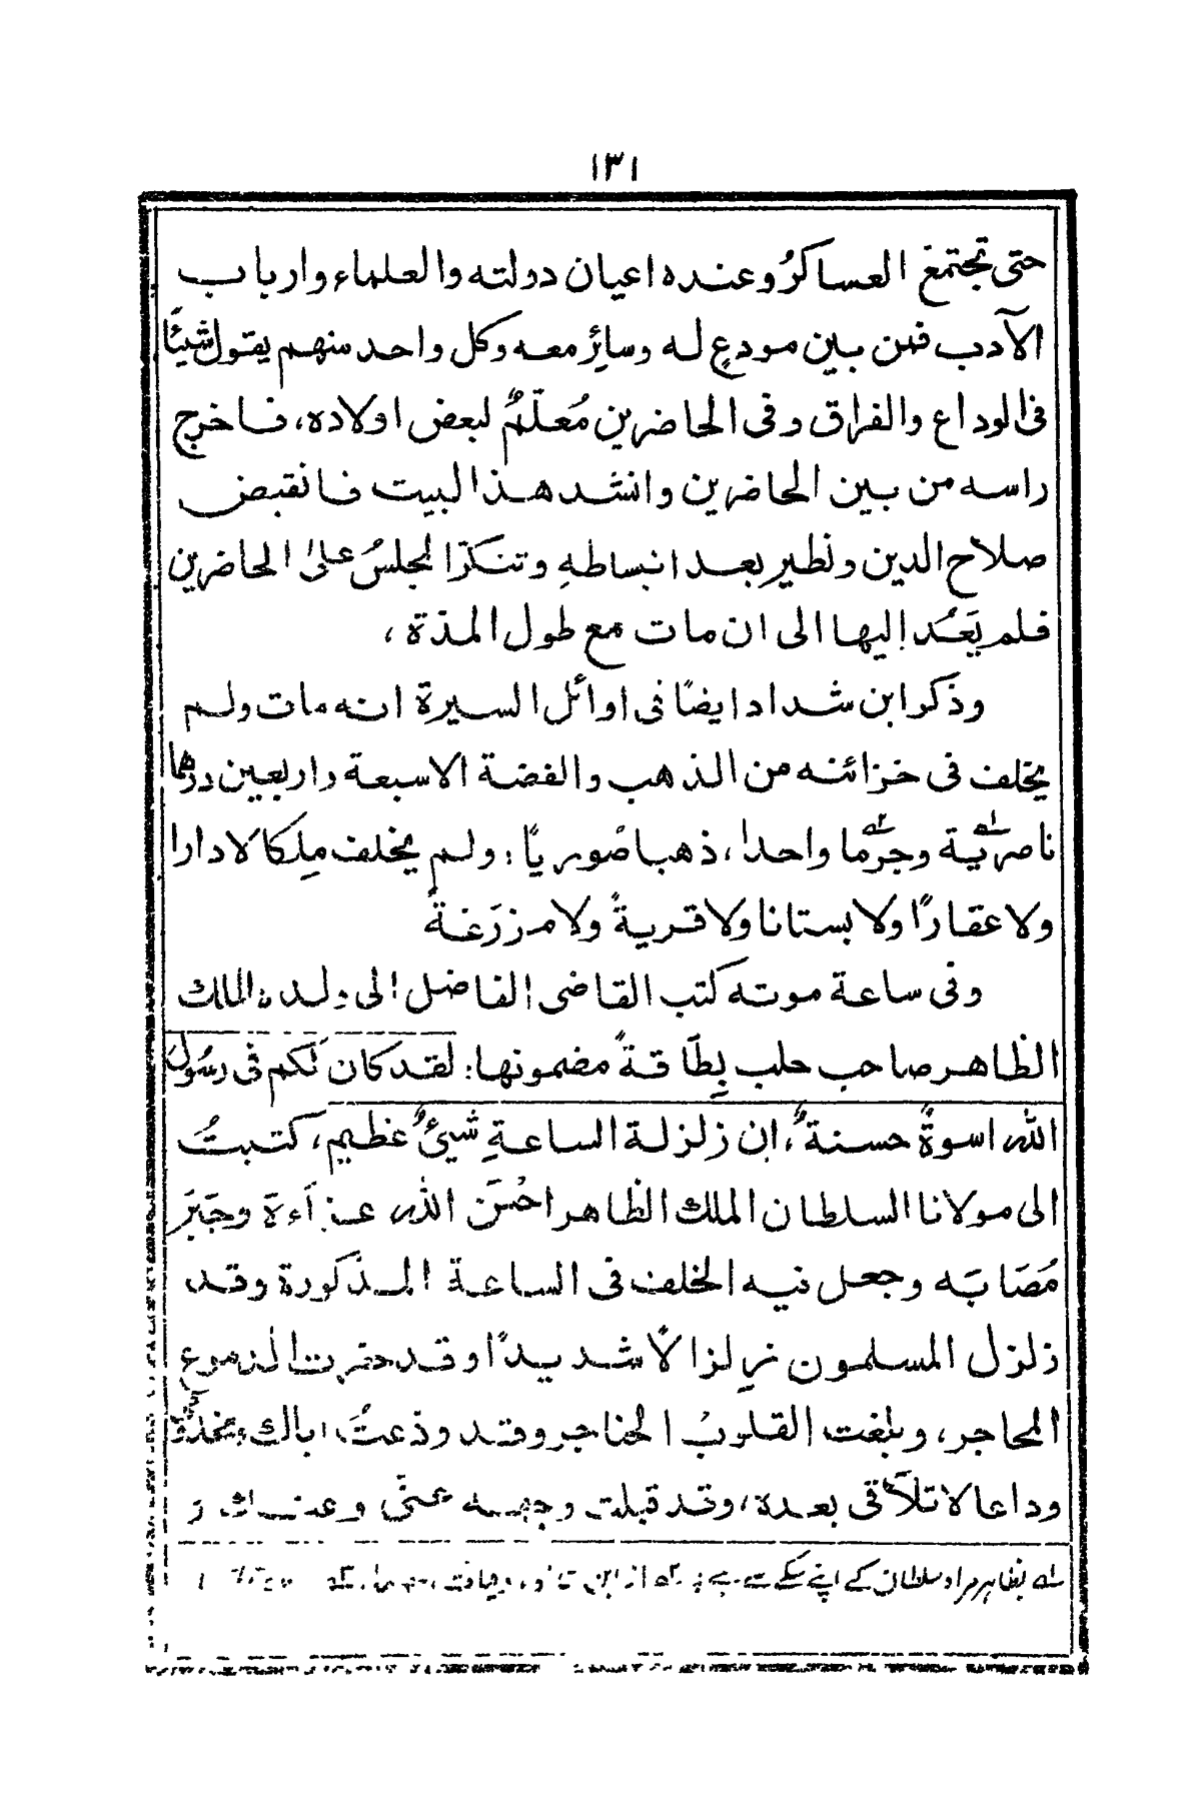 ١٣١
حتى تجتمع العساكرُ وعنده اعيان دولته والعلماء وارباب
الآدب فمن بين مودعٍ له وسائرٍ معه وكل واحد منهم يقول شيئًا
فى الوداع والفراق وفى الحاضرين مُعلّمٌ لبعض اولاده، فاخرج
راسه من بين الحاضرين وانشد هذا البيت فانقبض
صلاح الدين وتطير بعد انبساطهِ وتنكّر المجلسُ على الحاضرين
فلم يَعُد إليها الى ان مات مع طول المدة،
وذكر ابن شداد ايضًا فى اوائل السيرة انه مات ولم
يخلف فى خزائنه من الذهب والفضة الا سبعة واربعين درهما
ناصريّة وجرمًا واحدا، ذهبا صُوريًا: ولم يخلف مِلكا لا دارا
ولا عقارًا ولا بستانا ولا قريةً ولا مزرَعةً
وفى ساعة موته كتب القاضى الفاضل الى ولده الملك
الظاهر صاحب حلب بِطَاقةً مضمونها: لقد كان لَكم فى رسُول
الله اسوةٌ حسنةٌ، ان زلزلة الساعةِ شيئٌ عظيم، كتبتُ
الى مولانا السلطان الملك الظاهر احْسَن الله عزآءة وجَبَر
مُصَابَه وجعل فيه الخلف فى الساعة المذكورة وقد
زلزل المسلمون زِلزالًا شديدًا وقد حضرت الدموع
المحاجر، وبلغت القلوبُ الحناجر وقد ودعتُ اباك ومخدومى
وداعا لا تلآقى بعدة، وقد قبلت وجهه عنّى وعنك و
له بظاہر مراد سلطان کے اپنے سکے سے ہے